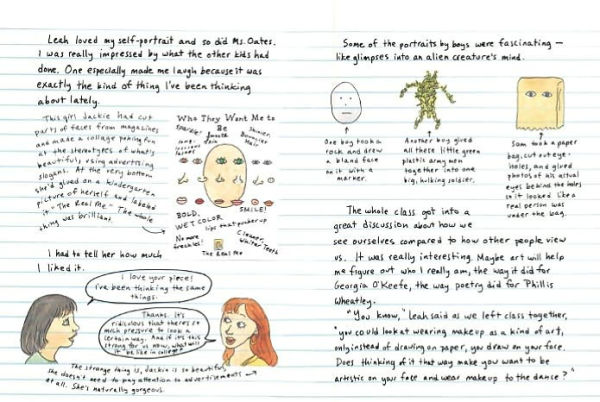 Leah loved my self-portrait and so did Ms. Oates.
I was really impressed by what the other kids had
done. One especially made me laugh because it was
exactly the kind of thing I've been thinking
about lately.
This girl Jackie had cut
parts of faces from magazines
and made a collage poking fun
at the stereotypes of what's
beautiful, using advertising
slogans. At the very bottom
she'd glued on a kindergarten
picture of herself and labeled
it "The Real Me." The whole
thing was brilliant.
Who They Want Me to
Be
Smooth
Skin
Shinier,
Bouncier
Hair
BOLD,
WET COLOR
SMILE!
lips that pucker up
No more
freckles!
The Real Me
Cleaner,
Whiter Teeth
I had to tell her how much
I liked it.
I love your piece!
I've been thinking the same
things.
Thanks. It's
ridiculous that there's so
much pressure to look a
certain way. And if it's this
strong for us now, what will
it be like in college?
The strange thing is, Jackie is so beautiful,
she doesn't need to pay attention to advertisements
at all. She's naturally gorgeous.
Some of the portraits by boys were fascinating —
like glimpses into an alien creature's mind.
One boy took a
rock and drew
a bland face
on it with a
marker.
Another boy glued
all these little green
plastic army men
together into one
big, hulking soldier.
Sam took a paper
bag, cut out eye-
holes, and glued
photos of his actual
eyes behind the holes
so it looked like a
real person was
under the bag.
The whole class got into a
great discussion about how we
see ourselves compared to how other people view
us. It was really interesting. Maybe art will help
me figure out who I really am, the way it did for
Georgia O'Keefe, the way poetry did for Phillis
Wheatley.
"You know," Leah said as we left class together,
"you could look at wearing makeup as a kind of art,
only instead of drawing on paper, you draw on your face.
Does thinking of it that way make you want to be
artistic on your face and wear makeup to the dance?"